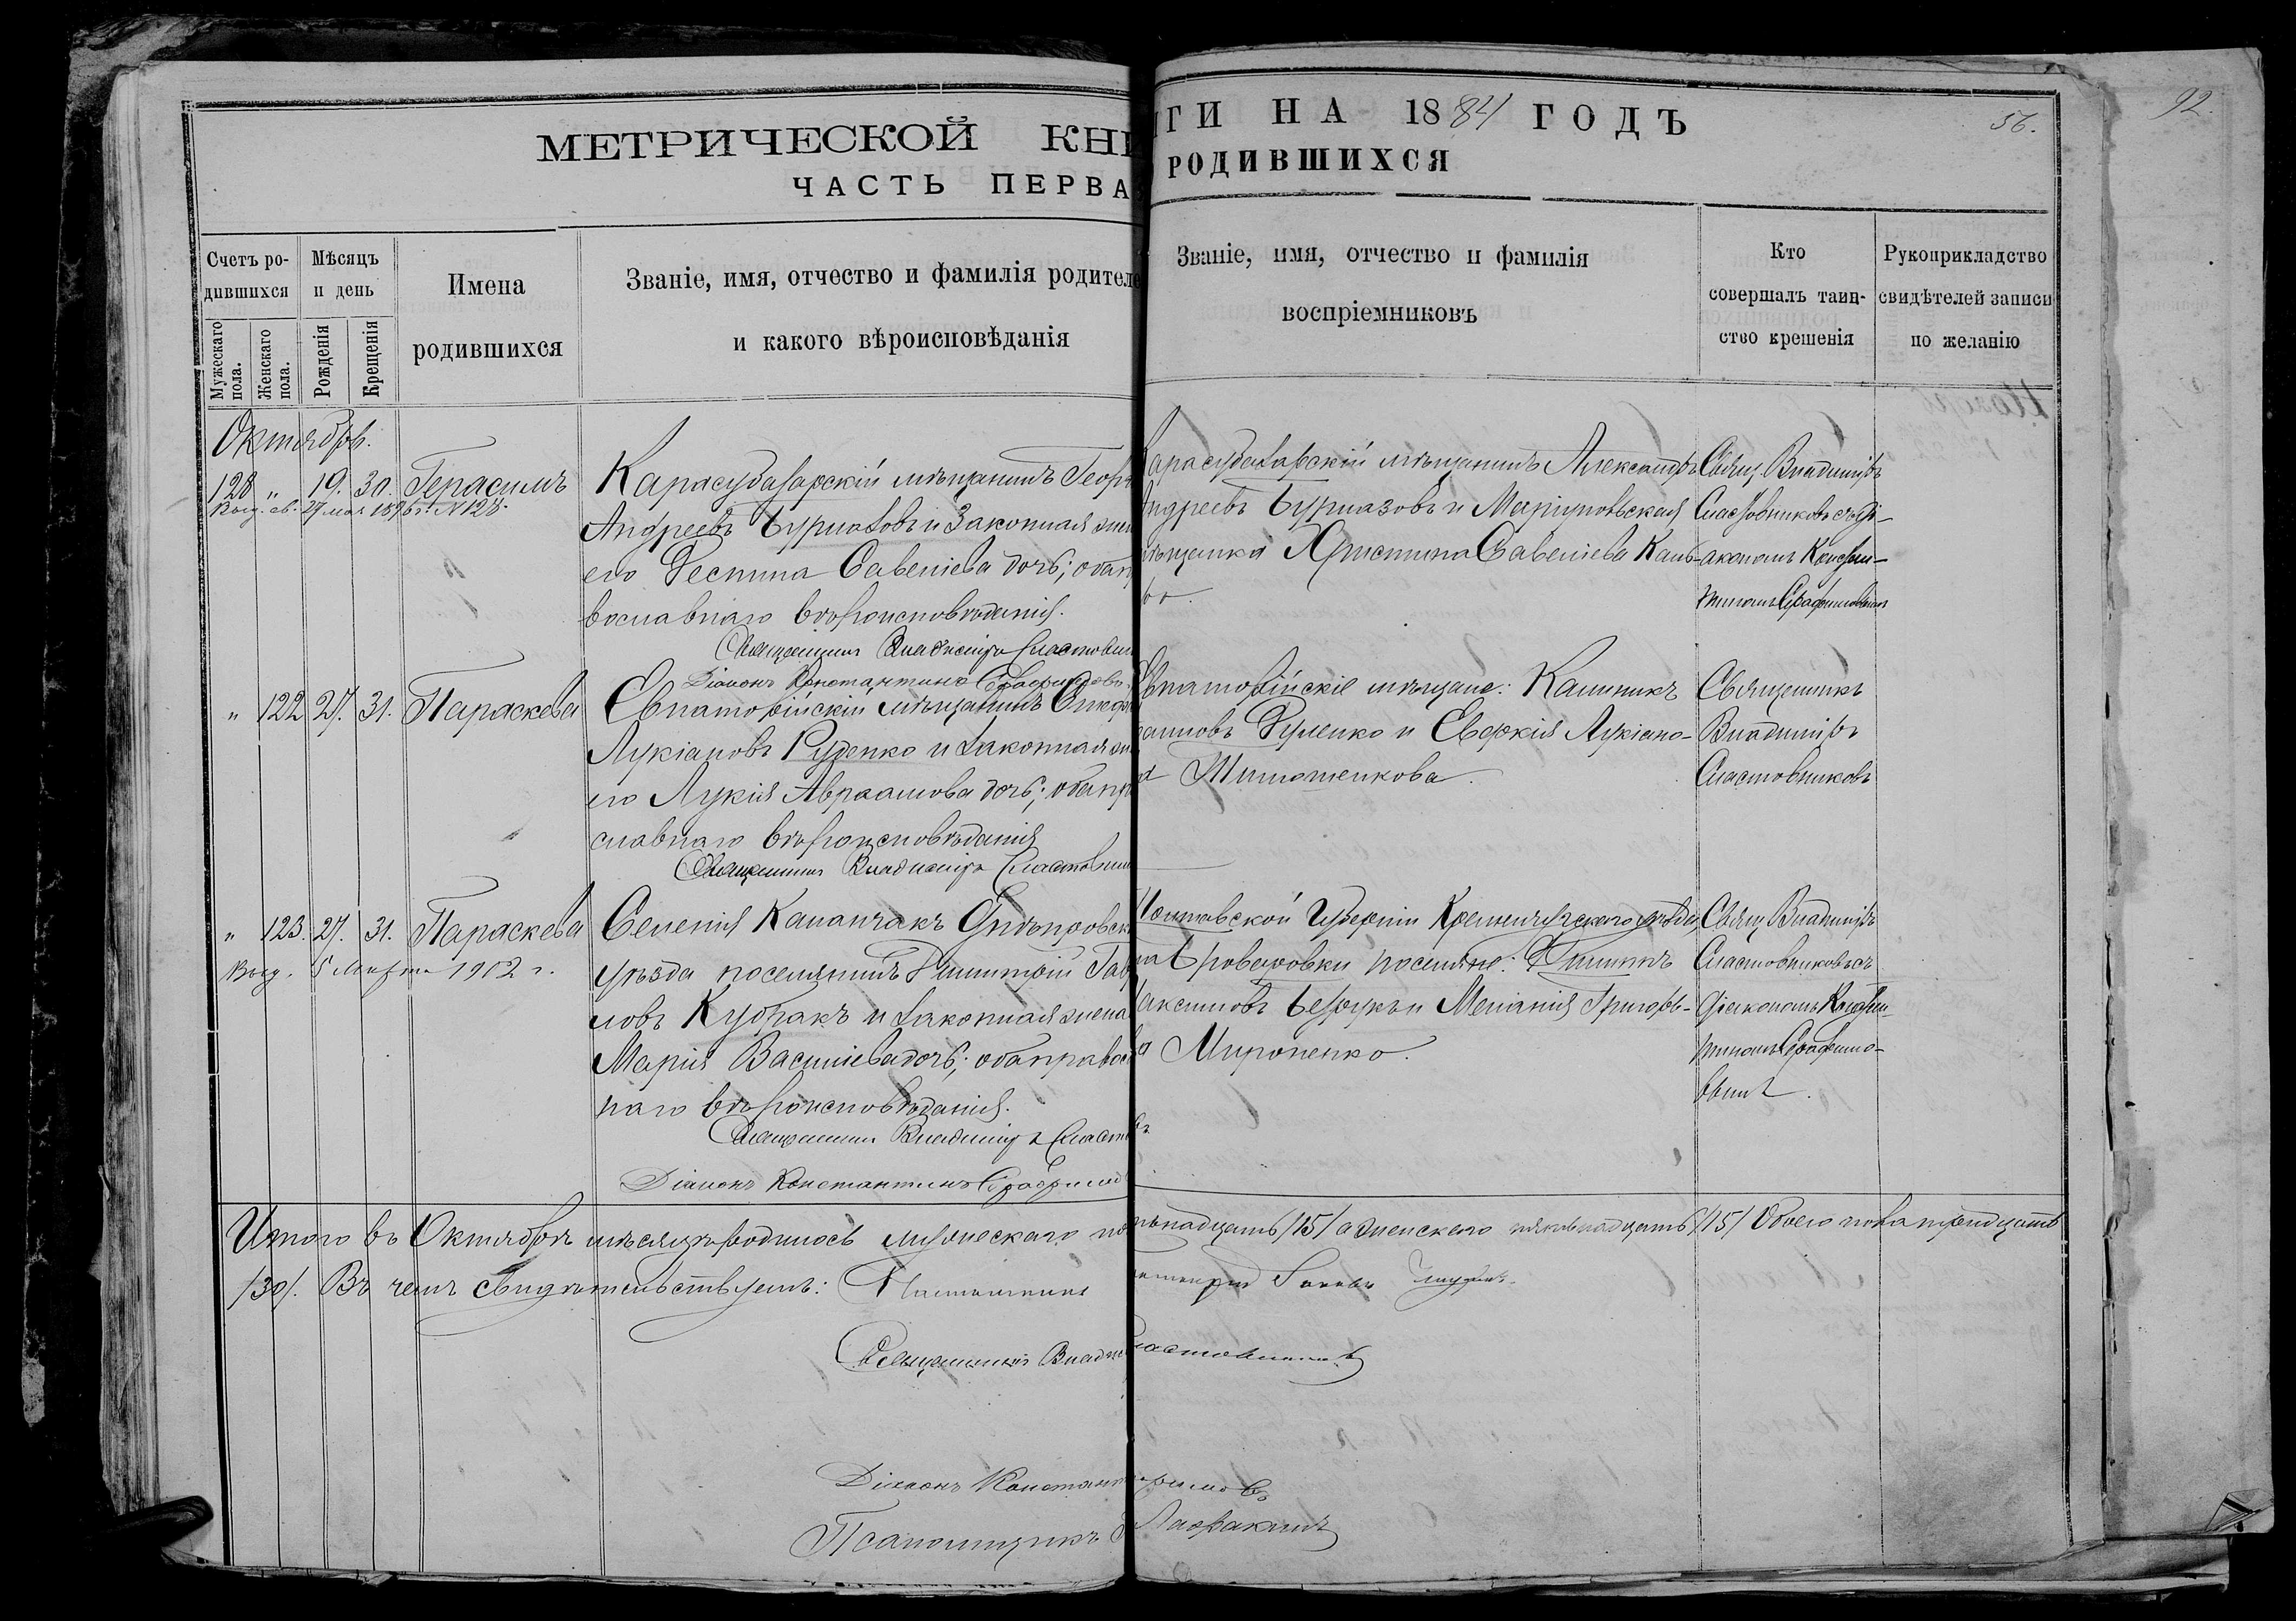 МЕТРИЧЕСКОЙ КНИ
ГИ НА 1884 ГОДЪ
56.
92.
ЧАСТЬ ПЕРВА
РОДИВШИХСЯ
Счетъ ро-
дившихся
Мужескаго пола.
Женскаго пола.
Мѣсяцъ
и день
Рожденія
Крещенія
Имена
родившихся
Званіе, имя, отчество и фамилія родителе
и какого вѣроисповѣданія
Званіе, имя, отчество и фамилія
воспріемниковъ
Кто
совершалъ таин-
ство крещенія
Рукоприкладство
свидѣтелей записи
по желанію
Октябрь.
128 " 19. 30. Герасимъ
Выд. св. 27 мая 1896 г. N 128.
Карасубазарскій мѣщанинъ Геор
Андреевъ Бурназовъ и законная жен
его Деспина Савеліева дочь; оба п
вославнаго вѣроисповѣданія.
Священникъ Владиміръ Сластовни
Діаконъ Константинъ Серафимов
Карасубазарскій мѣщанинъ Александръ
Андреевъ Бурназовъ и Маріупольская
мѣщанка Христина Савеліева
Свящ. Владиміръ
Сластовниковъ съ ді-
акономъ Констан-
тиномъ Серафимовымъ
" 122 27. 31. Параскева
Евпаторійскій мѣщанинъ Стеф
Лукіановъ Руденко и законная же
его Лукія Авраамова дочь; оба пр
славнаго вѣроисповѣданія
Священникъ Владиміръ Сластовни
Евпаторійскіе мѣщане: Калиникъ
и Евфкія Лукіано-
Священникъ
Владиміръ
Сластовниковъ
" 123. 27. 31. Параскева
Выд. 5 Марта 1902 г.
Селенія Каланчакъ Днѣпровск
уѣзда поселянинъ Димитрій Гав
ловъ Кубракъ и законная жена
Марія Васильева дочь; оба правос
наго вѣроисповѣданія.
Священникъ Владиміръ Сласт
Діаконъ Константинъ Серафимов
Полтавской Губерніи Кременчугскаго уѣзда,
поселяне:
аксимовъ и Меланія Григорь-
а Мироненко.
Свящ. Владиміръ
Сластовниковъ съ
діакономъ Констан-
тиномъ Серафимо-
вымъ.
Итого въ Октябрѣ мѣсяцѣ родилось мужескаго по
ятьнадцать /15/ а женскаго пятьнадцать /15/ Обоего пола тридцать
/30/. Въ чемъ свидѣтельствуемъ:
Священникъ Влади
ластовниковъ
Діаконъ Констант
фимовъ
Псаломщикъ